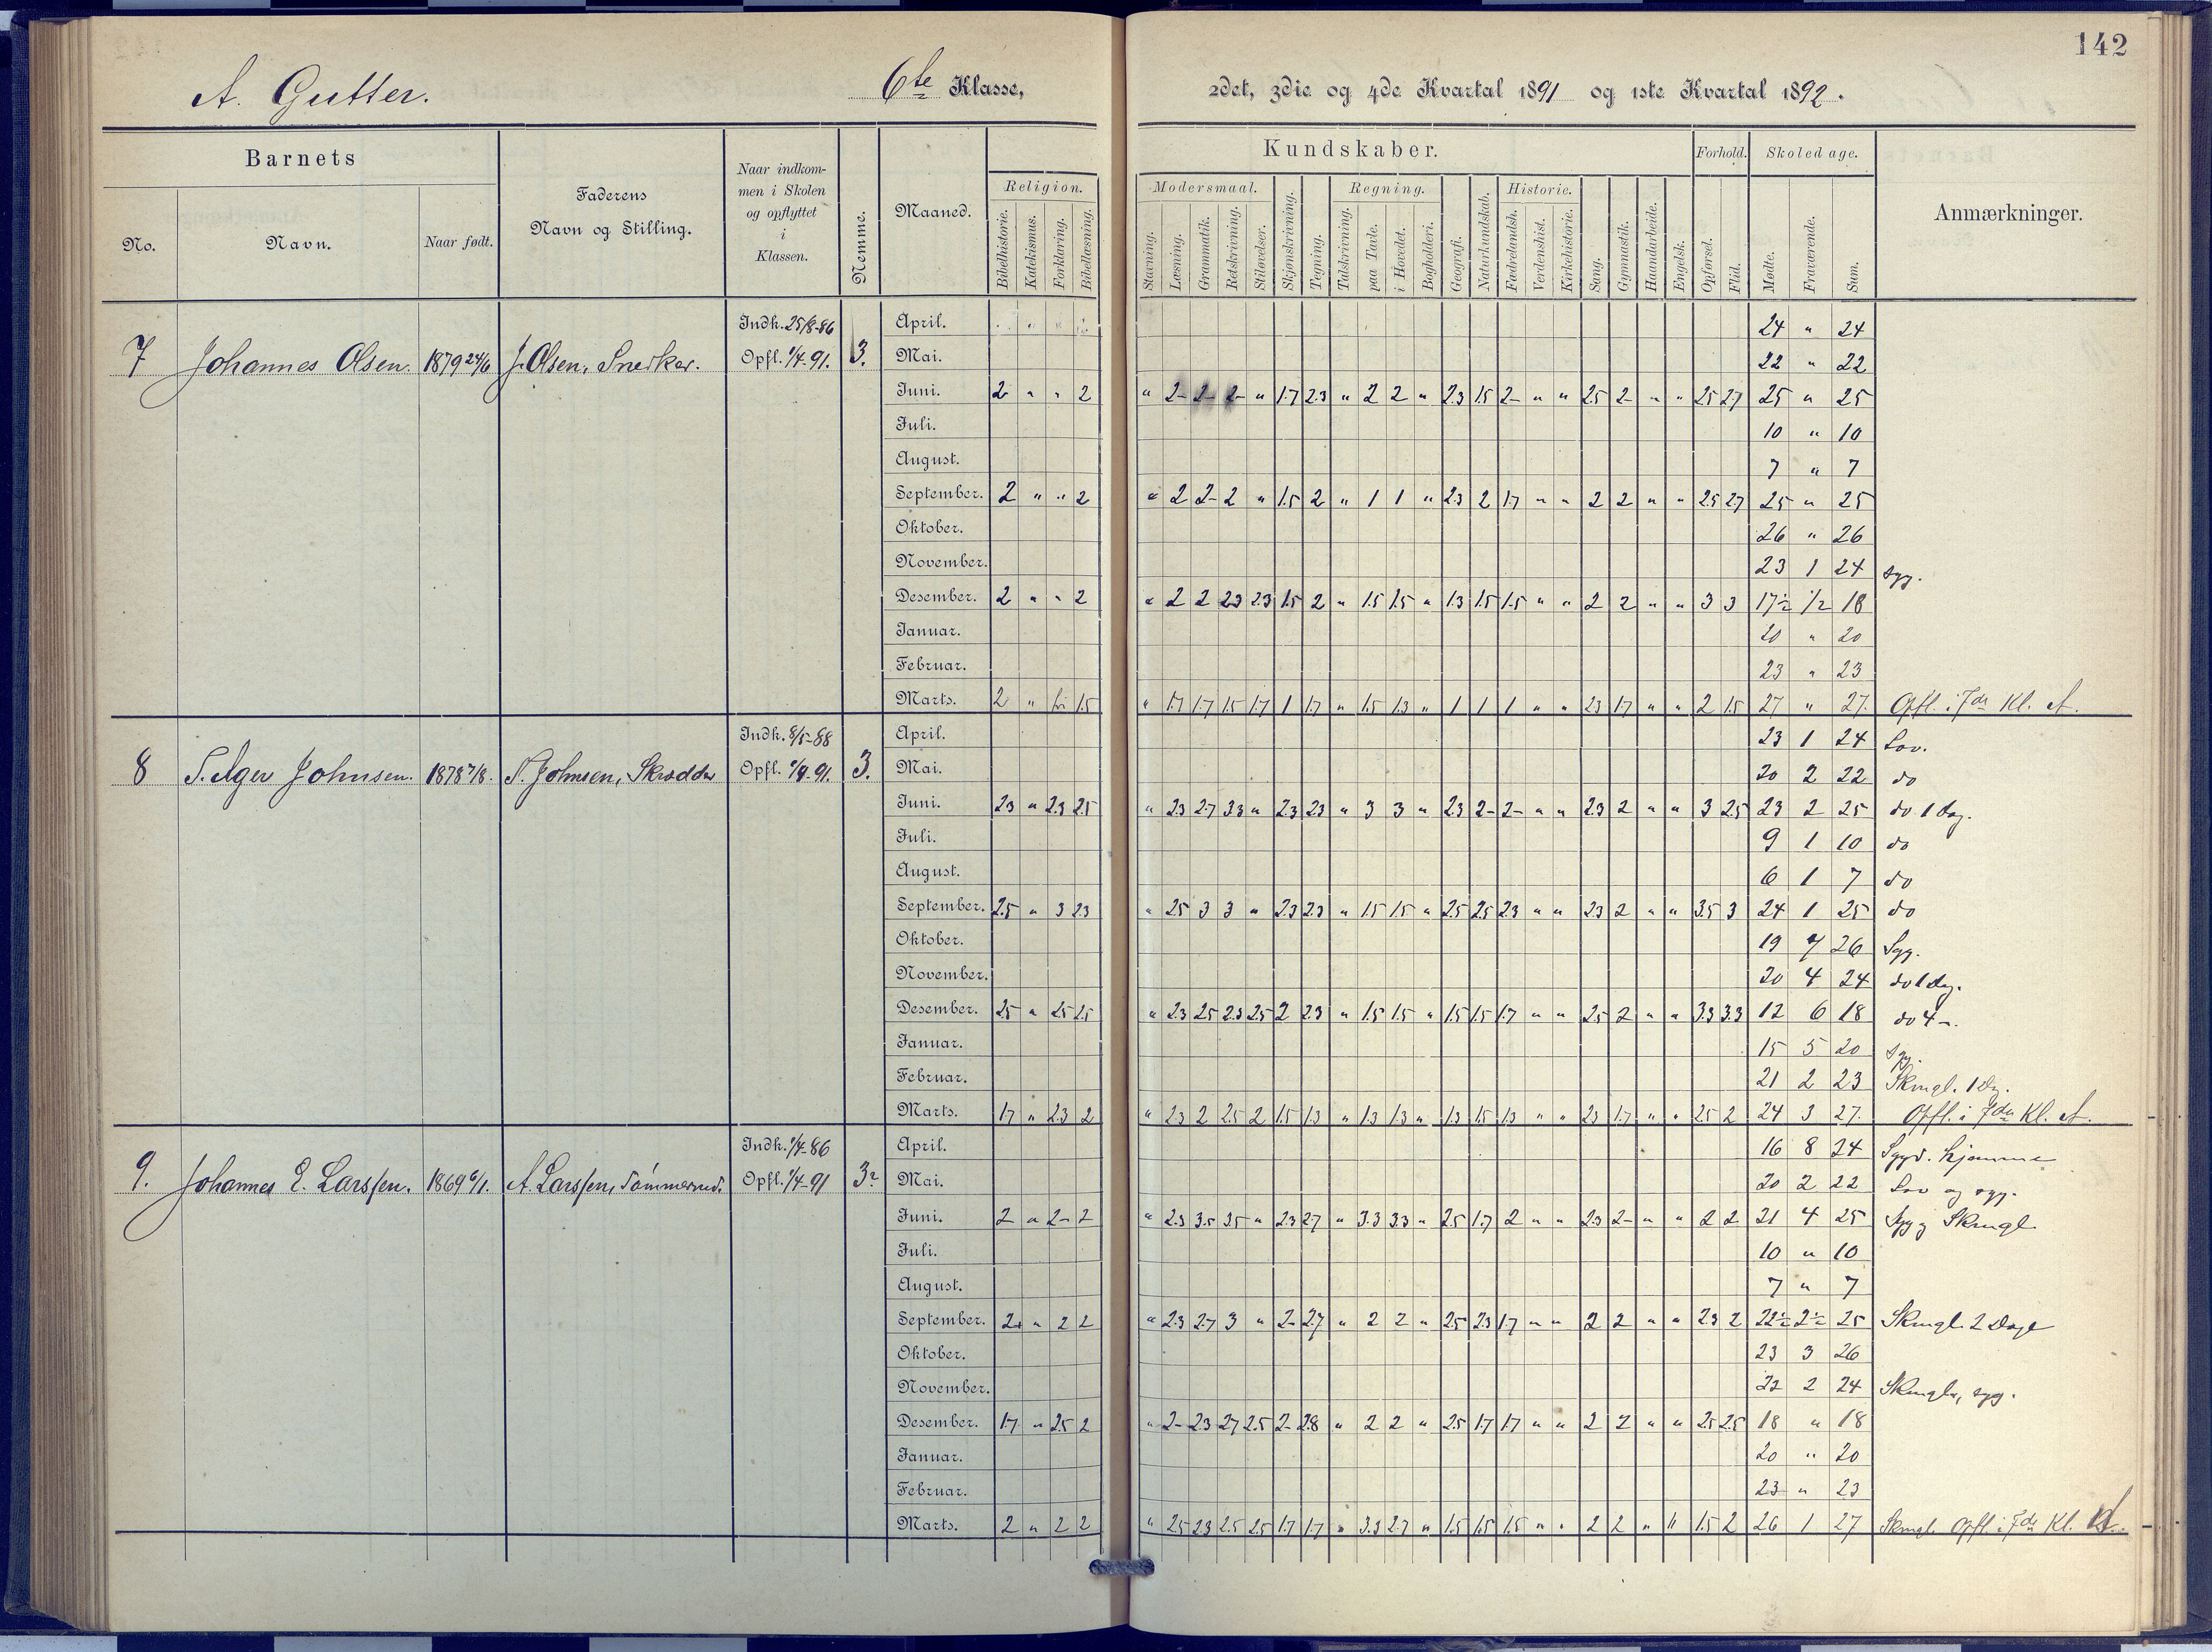 142
A. Gutter.
6te Klasse,
2det, 3die og 4de Kvartal 1891 og 1ste Kvartal 1892.
Barnets
No.
Navn.
Naar født.
Faderens
Navn og Stilling.
Naar indkom-
men i Skolen
og opflyttet
i
Klassen.
Nemme.
Maaned.
Kundskaber.
Religion.
Bibelhistorie.
Katekismus.
Forklaring.
Bibellæsning.
Modersmaal.
Stavning.
Læsning.
Grammatik.
Retskrivning.
Stiløvelser.
Skjønskrivning.
Tegning.
Regning.
Talskrivning.
paa Tavle.
i Hovedet.
Bogholderi.
Geografi.
Naturkundskab.
Historie.
Fædrelandsh.
Verdenshist.
Kirkehistorie.
Sang.
Gymnastik.
Haandarbeide.
Engelsk.
Forhold.
Opførsel.
Flid.
Skoledage.
Mødte.
Fraværende.
Sum.
Anmærkninger.
7 Johannes Olsen. 1879 24/6 J. Olsen, Snedker. Indk. 25/8-86 Opfl. 1/4-91. 3.
April. 24 " 24
Mai. 22 " 22
Juni. 2 " " 2 " 2- 2- 2- " 1.7 2.3 " 2 2 " 2.3 1.5 2- " " 2.5 2- " " 2.5 2.7 25 " 25
Juli. 10 " 10
August. 7 " 7
September. 2 " " 2 " 2 2- 2 " 1.5 2 " 1 1 " 2.3 2 1.7 " " 2 2 " " 2.5 2.7 25 " 25
Oktober. 26 " 26
November. 23 1 24 syg.
Desember. 2 " " 2 " 2 2 2.3 2.3 1.5 2 " 1.5 1.5 " 1.3 1.5 1.5 " " 2 2 " " 3 3 17½ ½ 18
Januar. 20 " 20
Februar. 23 " 23
Marts. 2 " fri 1.5 " 1.7 1.7 1.5 1.7 1 1.7 " 1.5 1.3 " 1 1 1 " " 2.3 1.7 " " 2 1.5 27 " 27. Opfl. i 7de Kl. A.
8 S. Ager Johnsen. 1878 7/8. S. Johnsen, Skrædder Indk. 8/5-88 Opfl. 1/4-91. 3.
April. 23 1 24 Lov.
Mai. 20 2 22 do
Juni. 2.3 " 2.3 2.5 " 2.3 2.7 3.3 " 2.3 2.3 " 3 3 " 2.3 2- 2- " " 2.3 2 " " 3 2.5 23 2 25 do 1 dag.
Juli. 9 1 10 do
August. 6 1 7 do
September. 2.5 " 3 2.3 " 2.5 3 3 " 2.3 2.3 " 1.5 1.5 " 2.5 2.5 2.3 " " 2.3 2 " " 3.5 3 24 1 25 do
Oktober. 19 7 26 Syg.
November. 20 4 24 do 1 dag.
Desember. 2.5 " 2.5 2.5 " 2.3 2.5 2.3 2.5 2 2.3 " 1.5 1.5 " 1.5 1.5 1.7 " " 2.5 2 " " 3.3 3.3 12 6 18 do 4 -.
Januar. 15 5 20 syg.
Februar. 21 2 23 Skingl. 1 Dg.
Marts. 1.7 " 2.3 2 " 2.3 2 2.5 2 1.5 1.3 " 1.3 1.3 " 1.3 1.5 1.3 " " 2.3 1.7 " " 2.5 2 24 3 27. Opfl. i 7de Kl. A.
9. Johannes E. Larssen. 1869 6/1. A. Larssen, Tømmermd. Indk. 1/4-86 Opfl. 1/4-91 3
April. 16 8 24 hjemme
Mai. 20 2 22 Lov og syg.
Juni. 2 " 2- 2 " 2.3 3.5 3.5 " 2.3 2.7 " 3.3 3.3 " 2.5 1.7 2 " " 2.3 2- " " 2 2 21 4 25 Syg Skingl
Juli. 10 " 10
August. 7 " 7
September. 2 " 2 2 " 2.3 2.7 3 " 2- 2.7 " 2 2 " 2.5 2.3 1.7 " " 2 2 " " 2.3 2 22½ 2½ 25 Skingl. 2 Dage
Oktober. 23 3 26
November. 22 2 24 syg.
Desember. 1.7 " 2.5 2 " 2- 2.3 2.7 2.5 2- 2.8 " 2 2 " 2.5 1.7 1.7 " " 2 2 " " 2.5 2.5 18 " 18
Januar. 20 " 20
Februar. 23 " 23
Marts. 2 " 2 2 " 2.5 2.3 2.5 2.5 1.7 1.7 " 3.3 2.7 " 1.5 1.5 1.5 " " 2 2 " " 1.5 2 26 1 27 Skingl. Opfl. i 7de Kl. A.